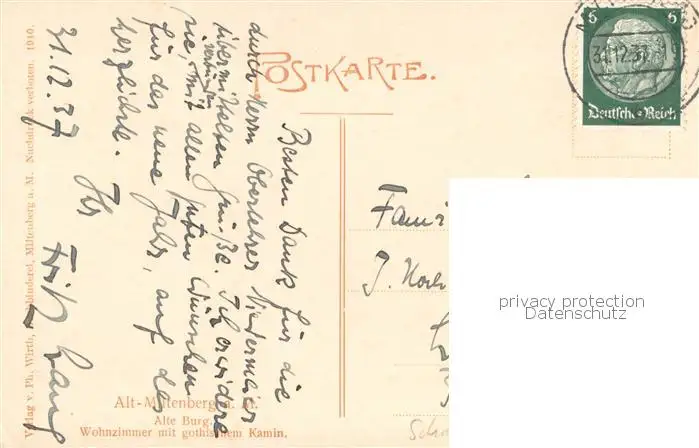 POSTKARTE.
Besten Dank für die
durch Herrn Oberlehrer
übermittelten Grüße. Ich erwidere
sie, verbunden mit allen guten Wünschen
für das neue Jahr, auf das
herzlichste.
Ihr
Fritz Lang
31.12.37
6 6
Deutsches Reich
31.12.37
Fami
J. Koch
privacy protection
Datenschutz
Alt-Miltenberg a. M.
Alte Burg.
Wohnzimmer mit gothischem Kamin.
Verlag v. Ph. Wirth, Miltenberg a. M. Nachdruck verboten. 1910.